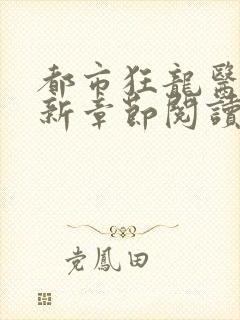 都市狂龍醫
新章節閱讀
党鳳田